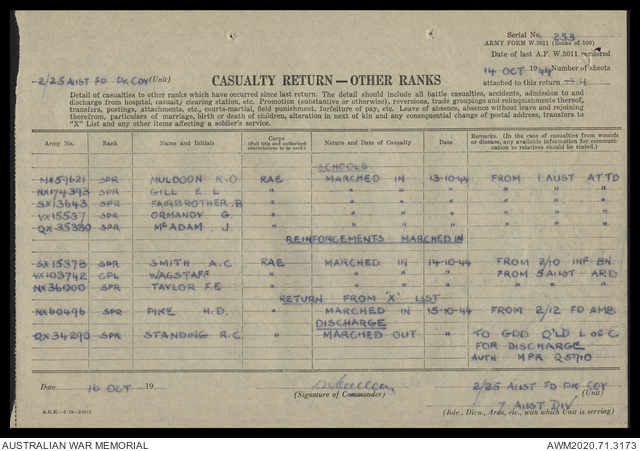 Serial No. 253
ARMY FORM W.3011 (Books of 100)
Date of last A.F. W.3011 rendered
14 OCT 1944 Number of sheets
2/25 AUST FD PK COY (Unit)
attached to this return 4
CASUALTY RETURN—OTHER RANKS
Detail of casualties to other ranks which have occurred since last return. The detail should include all battle casualties, accidents, admission to and
discharge from hospital, casualty clearing station, etc. Promotion (substantive or otherwise), reversions, trade groupings and relinquishments thereof,
transfers, postings, attachments, etc., courts-martial, field punishment, forfeiture of pay, etc. Leave of absence, absence without leave and rejoining
therefrom, particulars of marriage, birth or death of children, alteration in next of kin and any consequential change of postal address, transfers to
"X" List and any other items affecting a soldier's service.
Army No. Rank Name and Initials Corps (Full title and authorised abbreviations to be used.) Nature and Date of Casualty Date Remarks. (In the case of casualties from wounds or disease, any available information for communication to relatives should be stated.)
SCHOOLS
NX59621 SPR MULDOON K.O RAE MARCHED IN 13-10-44 FROM 1 AUST ATTD
NX174393 SPR GILL E.L " " " " " " " "
SX13643 SPR FAIRBROTHER.B " " " " " " " "
VX15537 SPR ORMANDY G. " " " " " " " "
QX35380 SPR McADAM J. " " " " " " " "
REINFORCEMENTS MARCHED IN
SX15378 SPR SMITH A.C RAE MARCHED IN 14-10-44 FROM 2/10 INF BN.
VX103742 CPL WAGSTAFF " " " " FROM 5 AUST ARD
NX36000 SPR TAYLOR F.E " " " " " " "
RETURN FROM 'X' LIST
NX60496 SPR PIKE H.D. " MARCHED IN 15-10-44 FROM 2/12 FD AMB
DISCHARGE
QX34290 SPR STANDING R.C. " MARCHED OUT " TO GDD Q'LD L OF C
FOR DISCHARGE
AUTH MPR Q5910
Date 16 OCT 19
(Signature of Commander)
2/25 AUST FD PK COY (Unit)
7 AUST DIV
(Bde., Divn., Area, etc., with which Unit is serving)
AUSTRALIAN WAR MEMORIAL
AWM2020.71.3173